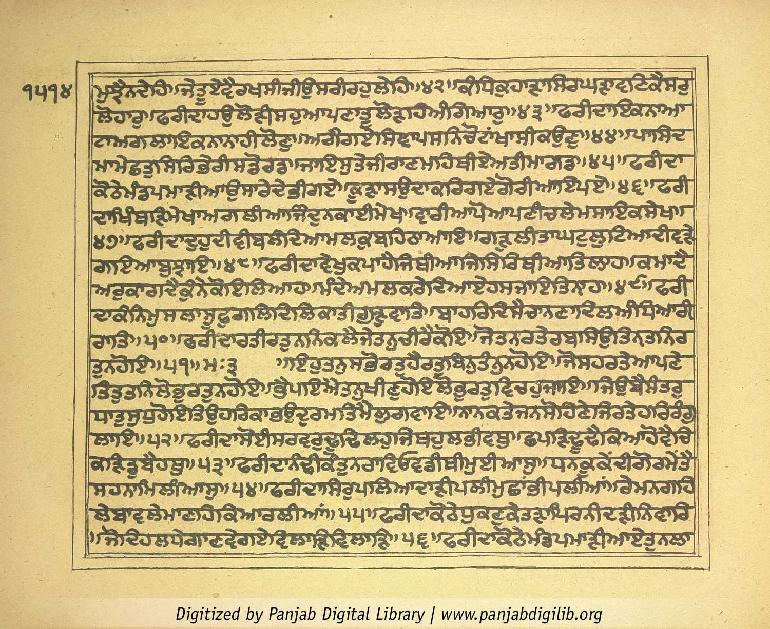 ੧੫੧੪
ਮੁਝੈਨਦੇਹਿ॥ਜੇਤੂਏਵੈਰਖਸੀਜੀਉਸਰੀਰਹੁਲੇਹਿ॥੪੨॥ਕੰਧਿਕੁਹਾੜਾਸਿਰਿਘੜਾਵਣਿਕੈਸਰੁ
ਲੋਹਾਰੁ॥ਫਰੀਦਾਹਉਲੋੜੀਸਹੁਆਪਣਾਤੂਲੋੜਹਿਅੰਗਿਆਰ॥੪੩॥ਫਰੀਦਾਇਕਨਾਆ
ਟਾਅਗਲਾਇਕਨਾਨਾਹੀਲੋਣੁ॥ਅਗੈਗਏਸਿੰਞਾਪਸਨਿਚੋਟਾਂਖਾਸੀਕਉਣੁ॥੪੪॥ਪਾਸਿਦ
ਮਾਮੇਛਤੁਸਿਰਿਭੇਰੀਸਡੋਰਡ॥ਜਾਇਸੁਤੇਜੀਰਾਣਮਹਿਥੀਏਅਤੀਮਾਗਡ॥੪੫॥ਫਰੀਦਾ
ਕੋਠੇਮੰਡਪਮਾੜੀਆਉਸਾਰੇਦੇਭੀਗਏ॥ਕੂੜਾਸਉਦਾਕਰਿਗਏਗੋਰੀਆਇਪਏ॥੪੬॥ਫਰੀ
ਦਾਖਿੰਥੜਿਮੇਖਾਅਗਲੀਆਜਿੰਦੁਨਕਾਈਮੇਖ॥ਵਾਰੀਆਪੋਆਪਣੀਚਲੇਮਸਾਇਕਸੇਖ॥
੪੭॥ਫਰੀਦਾਦੁਹੁਦੀਵੀਬਲੰਦਿਆਮਲਕੁਬਹਿਠਾਆਇ॥ਗੜੁਲੀਤਾਘਟੁਲੁਟਿਆਦੀਵੜੇ
ਗਇਆਬੁਝਾਇ॥੪੮॥ਫਰੀਦਾਵੇਖੁਕਪਾਹੈਜਿਥੀਆਜਿਸਿਰਿਥੀਆਤਿਲਾਹ॥ਕਮਾਦੈ
ਅਰੁਕਾਗਦੈਕੁੰਨੇਕੋਇਲਿਆਹ॥ਮੰਦੇਅਮਲਕਰੇਦਿਆਏਹਸਜਾਇਤਿਨਾਹ॥੪੯॥ਫਰੀ
ਦਾਕੰਨਿਮੁਸਲਾਸੂਫੁਗਲਿਦਿਲਿਕਾਤੀਗੁੜੁਵਾਤਿ॥ਬਾਹਰਿਦਿਸੈਚਾਨਣਾਦਿਲਿਅੰਧਿਆਰੀ
ਰਾਤਿ॥੫੦॥ਫਰੀਦਾਰਤੀਰਤੁਨਨਿਕਲੈਜੇਤਨੁਚੀਰੈਕੋਇ॥ਜੋਤਨਰਤੇਰਬਸਿਉਤਿਨਤਨਿਰ
ਤੁਨਹੋਇ॥੫੧॥ਮਃ੩ ॥ਇਹੁਤਨੁਸਭੋਰਤੁਹੈਰਤੁਬਿਨੁਤੰਨੁਨਹੋਇ॥ਜੋਸਹਰਤੇਆਪਣੇ
ਤਿਤੁਤਨਿਲੋਭੁਰਤੁਨਹੋਇ॥ਭੈਪਇਐਤਨੁਖੀਣੁਹੋਇਲੋਭੁਰਤੁਵਿਚਹੁਜਾਇ॥ਜਿਉਬੈਸੰਤਰਿ
ਧਾਤੁਸੁਧੁਹੋਇਤਿਉਹਰਿਕਾਭਉਦੁਰਮਤਿਮੈਲੁਗਵਾਇ॥ਨਾਨਕਤੇਜਨਸੋਹਣੇਜਿਰਤੇਹਰਿਰੰਗੁ
ਲਾਇ॥੫੨॥ਫਰੀਦਾਸੋਈਸਰਵਰੁਢੂਢਿਲਹੁਜਿਥਹੁਲਭੀਵਥੁ॥ਛਪੜਿਢੂਢੈਕਿਆਹੋਵੈਚਿ
ਕੜਿਡੁਬੈਹਥੁ॥੫੩॥ਫਰੀਦਾਨੰਢੀਕੰਤੁਨਰਾਵਿਓਵਡੀਥੀਮੁਈਆਸੁ॥ਧਨਕੂਕੇਂਦੀਗੋਰਮੇਂਤੈ
ਸਹਨਾਮਿਲੀਆਸੁ॥੫੪॥ਫਰੀਦਾਸਿਰੁਪਲਿਆਦਾੜੀਪਲੀਮੁਛਾਂਭੀਪਲੀਆਂ॥ਰੇਮਨਗਹਿ
ਲੇਬਾਵਲੇਮਾਣਹਿਕਿਆਰਲੀਆਂ॥੫੫॥ਫਰੀਦਾਕੋਠੇਧੁਕਣੁਕੇਤੜਾਪਿਰਨੀਦੜੀਨਿਵਾਰਿ
॥ਜੋਦਿਹਲਧੇਗਾਣਵੇਗਏਵਿਲਾੜਿਵਿਲਾੜਿ॥੫੬॥ਫਰੀਦਾਕੋਠੇਮੰਡਪਮਾੜੀਆਏਤੁਨਲਾ
Digitized by Panjab Digital Library | www.panjabdigilib.org